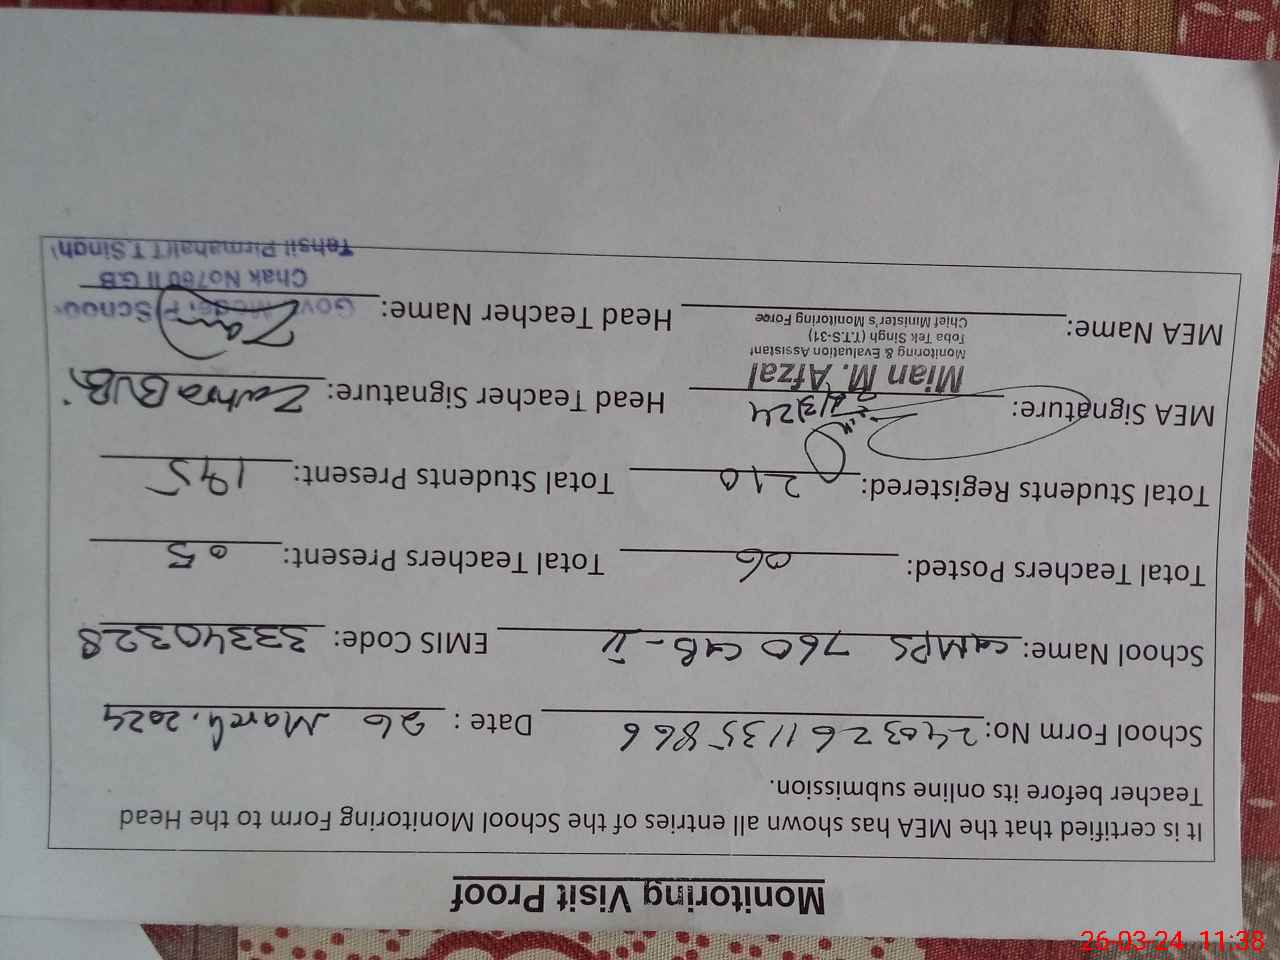 Monitoring Visit Proof
It is certified that the MEA has shown all entries of the School Monitoring Form to the Head
Teacher before its online submission.
School Form No: 2403261135866 Date : 26 March. 2024
School Name: GMPS 760 GB-ii EMIS Code: 33340328
Total Teachers Posted: 06 Total Teachers Present: 05
Total Students Registered: 210 Total Students Present: 195
MEA Signature: Head Teacher Signature: Zahra BiBi
Mian M. Afzal
Monitoring & Evaluation Assistant
Toba Tek Singh (T.T.S-31)
Chief Minister's Monitoring Force
MEA Name: Head Teacher Name: Govt Model P School
Chak No760 II G.B
Tehsil Pirmahal T.T.Singh
26-03-24 11:38